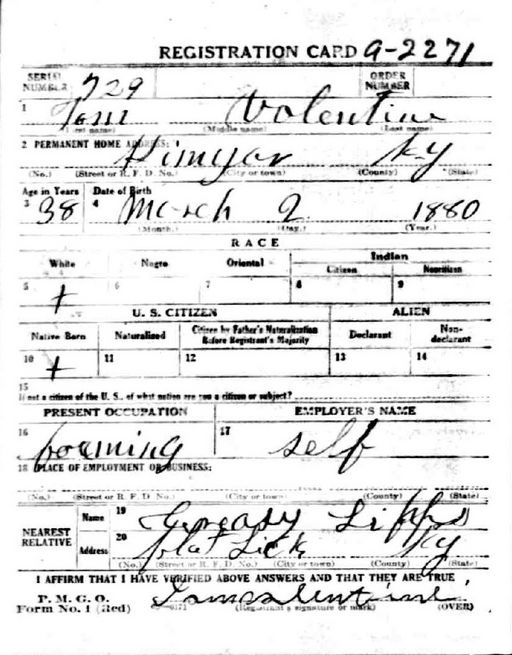 REGISTRATION CARD 9-2271
SERIAL NUMBER 729 ORDER NUMBER
1 Tom Valentine
(First name) (Middle name) (Last name)
2 PERMANENT HOME ADDRESS:
Himyar Ky
(No.) (Street or R. F. D. No.) (City or town) (County) (State)
Age in Years Date of Birth
3 38 4 March 2 1880
(Month.) (Day.) (Year.)
RACE
White Negro Oriental Indian
Citizen Noncitizen
5 + 6 7 8 9
U. S. CITIZEN ALIEN
Native Born Naturalized Citizen by Father's Naturalization Before Registrant's Majority Declarant Non-declarant
10 + 11 12 13 14
15
If not a citizen of the U. S., of what nation are you a citizen or subject?
PRESENT OCCUPATION EMPLOYER'S NAME
16 farming 17 self
18 PLACE OF EMPLOYMENT OR BUSINESS:
(No.) (Street or R. F. D. No.) (City or town) (County) (State)
NEAREST RELATIVE
Name 19
Address 20 flat Lick Ky
(No.) (Street or R. F. D. No.) (City or town) (County) (State)
I AFFIRM THAT I HAVE VERIFIED ABOVE ANSWERS AND THAT THEY ARE TRUE
P. M. G. O.
Form No. 1 (Red) (Registrant's signature or mark) (OVER)